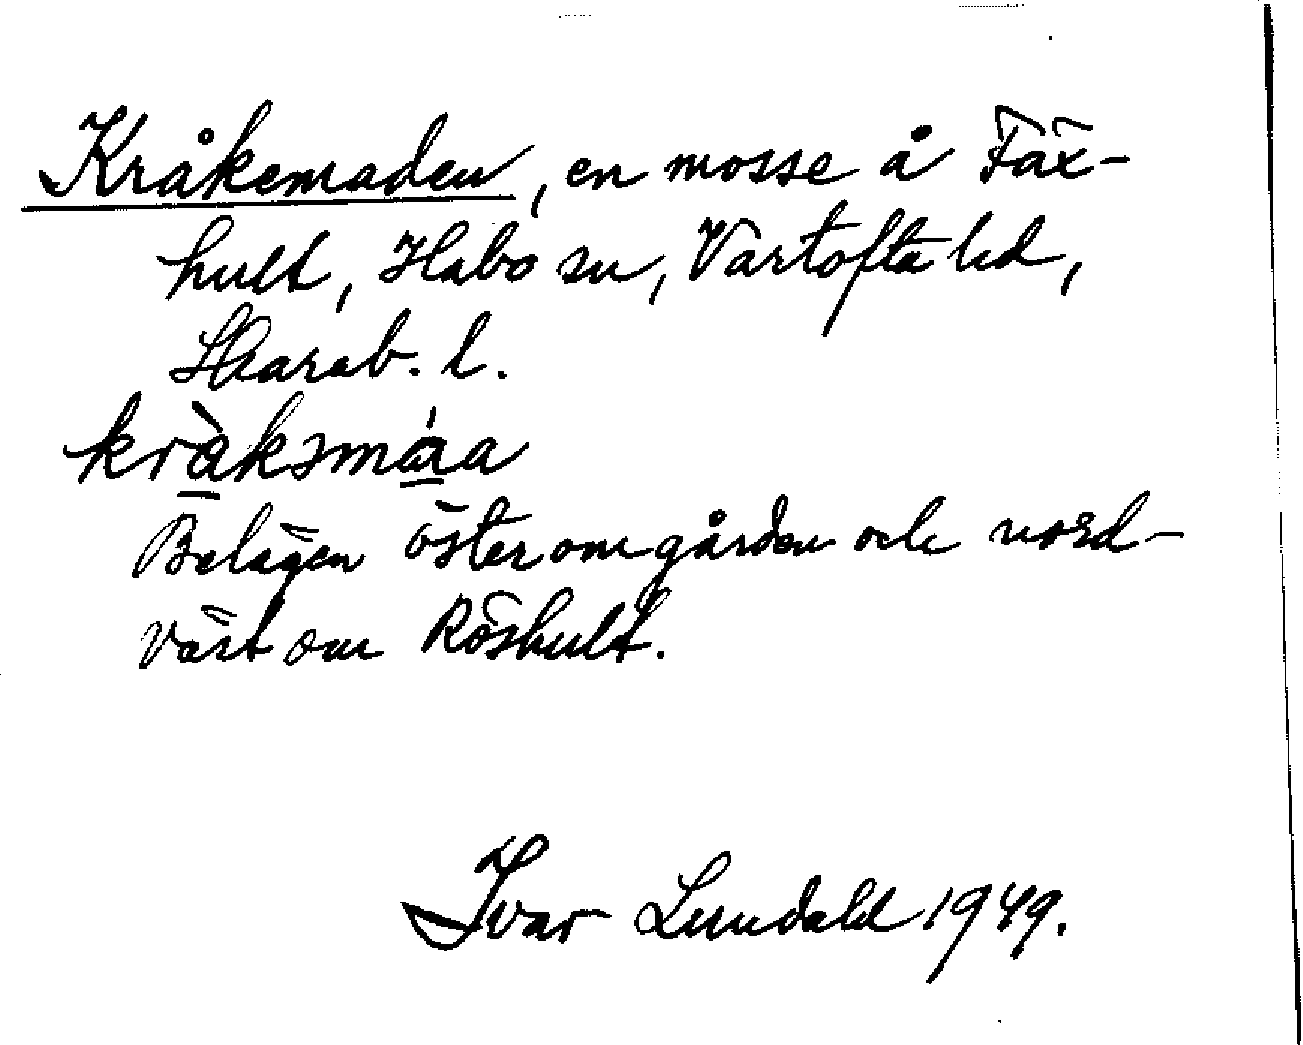 Kråkemaden, en mosse å Fäx-
hult, Habo sn, Vartofta hd,
Skarab. l.
kràksmáa
Belägen öster om gården och nord-
väst om Röshult.
Ivar Lundahl 1949.